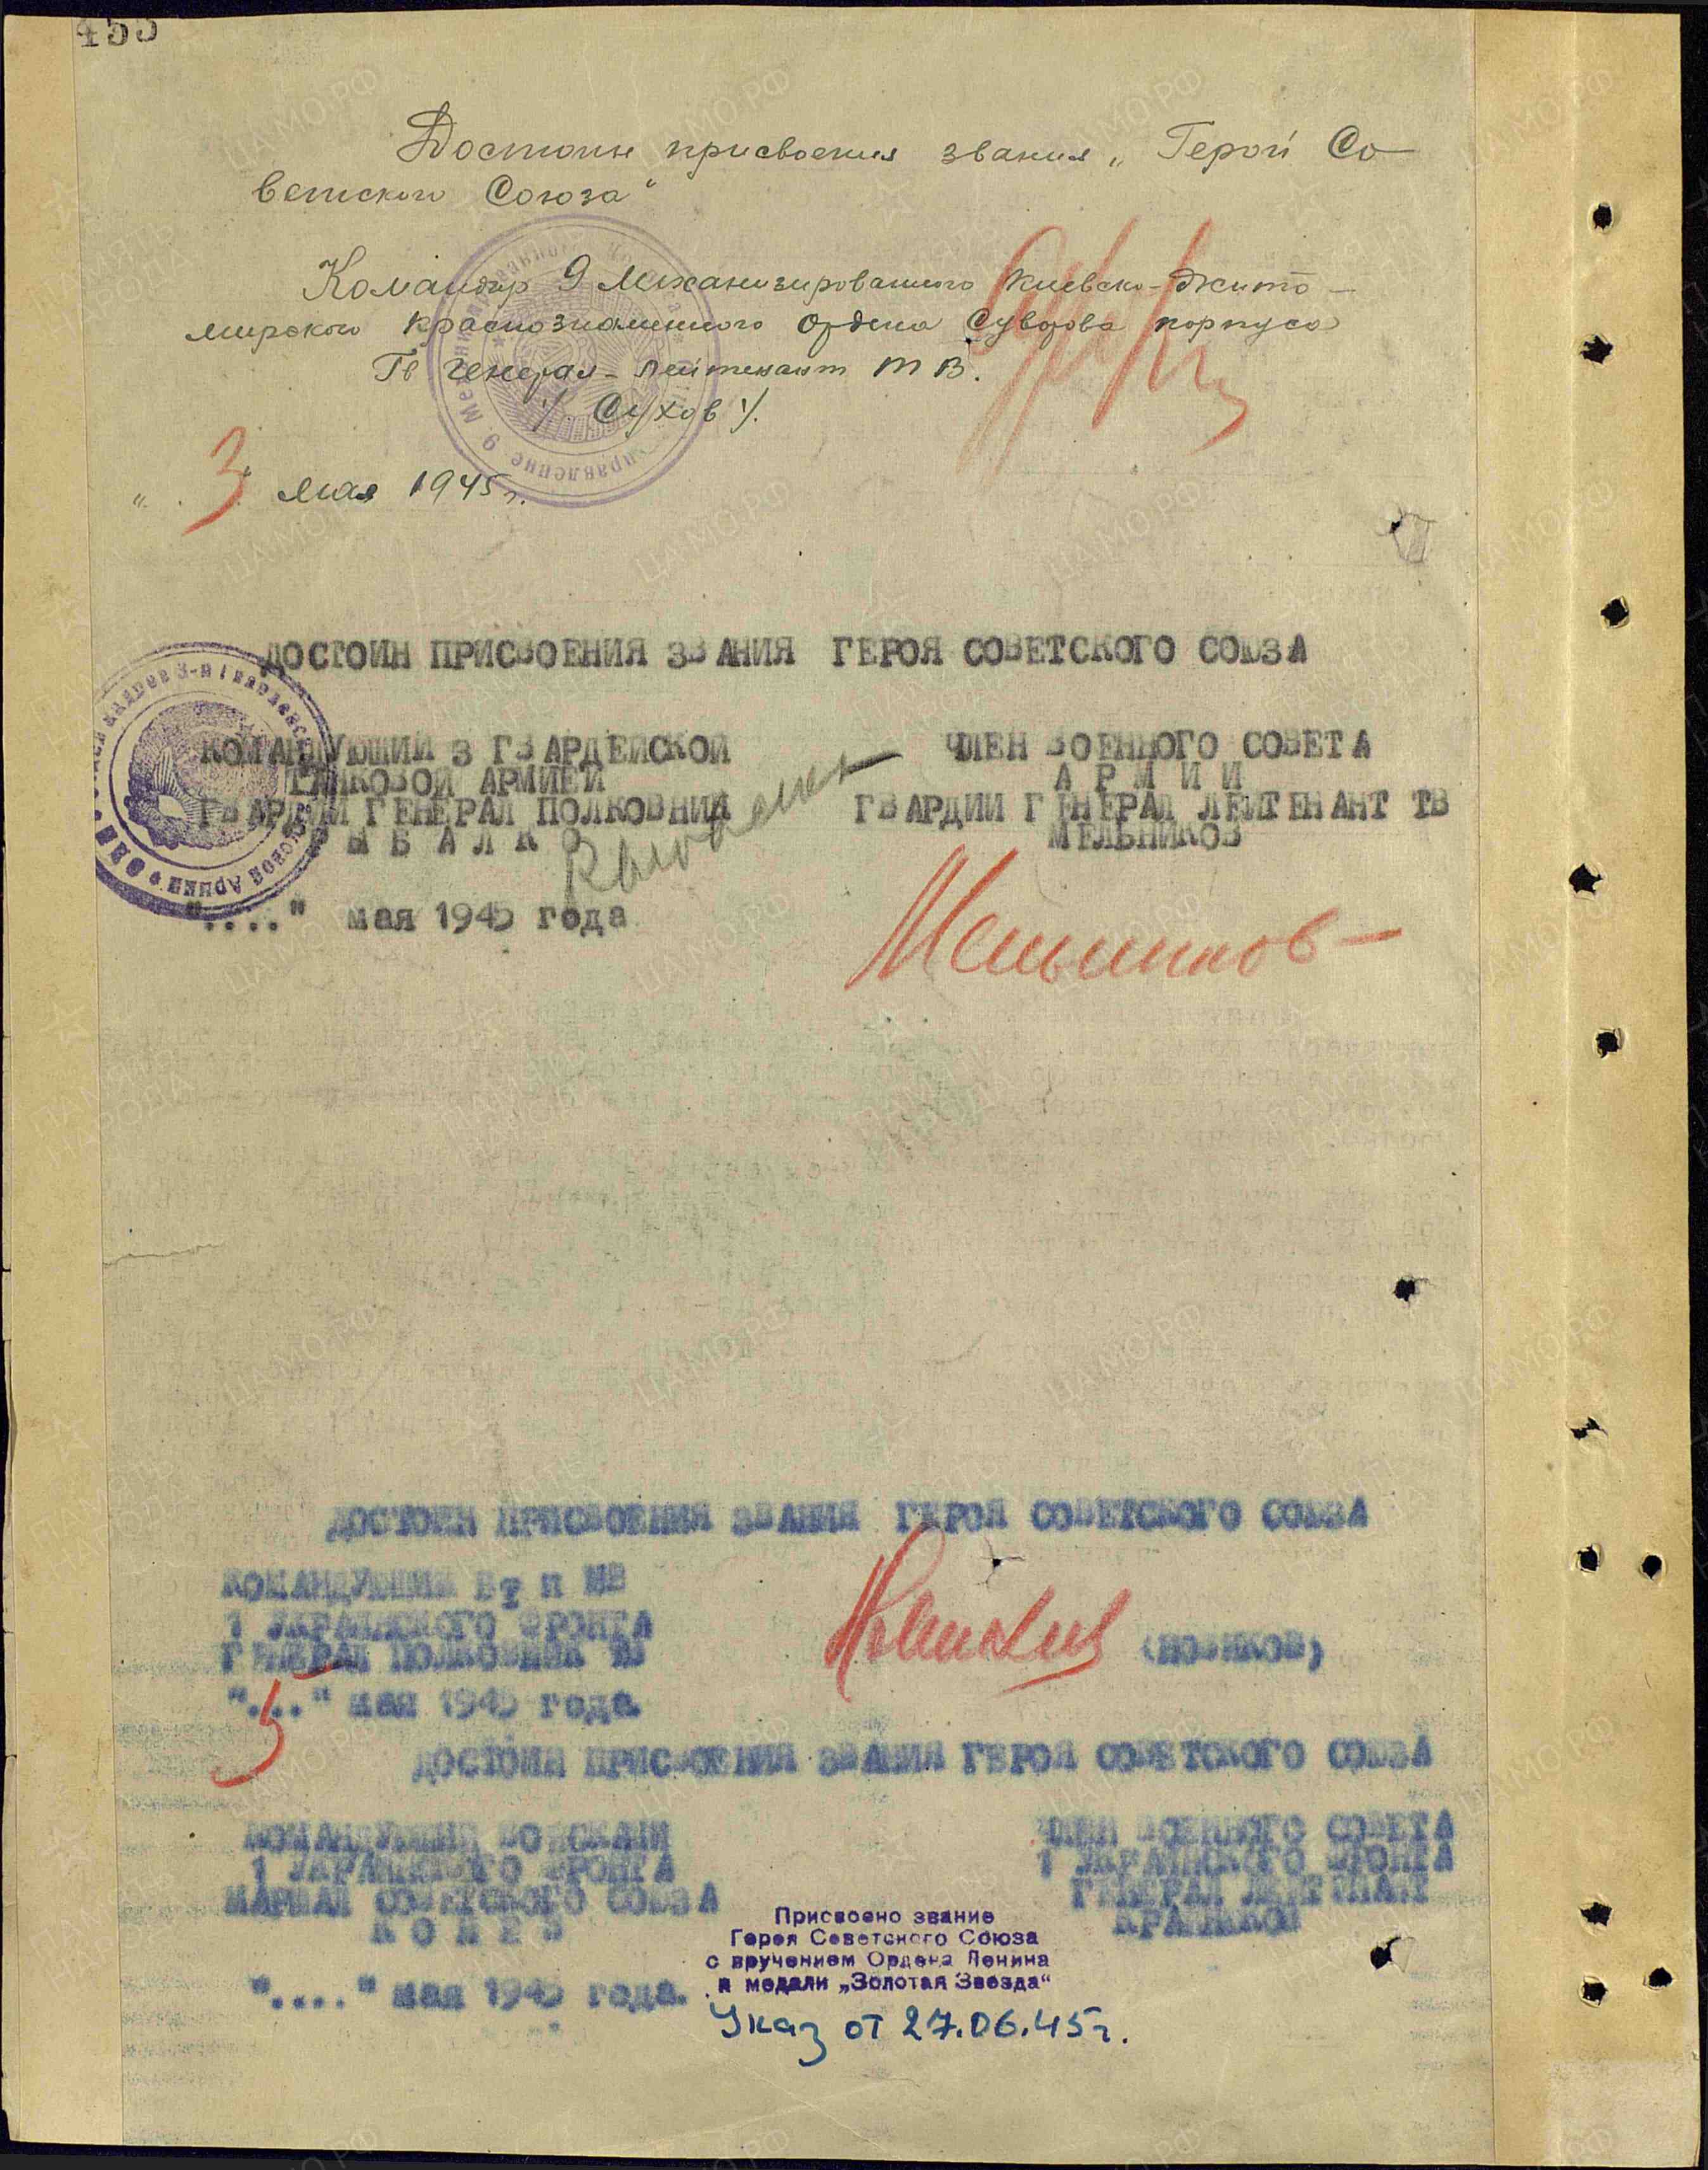 455
Достоин присвоения звания „Герой Со-
ветского Союза"
Командир 9 Механизированного Киевско-Жито-
мирского Краснознаменного Ордена Суворова корпуса
Гв генерал-лейтенант ТВ.
/ Сухов /.
" 3 " мая 1945 г.
ДОСТОИН ПРИСВОЕНИЯ ЗВАНИЯ ГЕРОЯ СОВЕТСКОГО СОЮЗА
КОМАНДУЮЩИЙ 3 ГВАРДЕЙСКОЙ
ТАНКОВОЙ АРМИЕЙ
ГВАРДИИ ГЕНЕРАЛ ПОЛКОВНИК
РЫБАЛКО
"...." мая 1945 года
ЧЛЕН ВОЕННОГО СОВЕТА
АРМИИ
ГВАРДИИ ГЕНЕРАЛ ЛЕЙТЕНАНТ ТВ
МЕЛЬНИКОВ
Мельников
ДОСТОИН ПРИСВОЕНИЯ ЗВАНИЯ ГЕРОЯ СОВЕТСКОГО СОЮЗА
КОМАНДУЮЩИЙ БТ и МВ
1 УКРАИНСКОГО ФРОНТА
ГЕНЕРАЛ ПОЛКОВНИК ТВ
(НОВИКОВ)
"...." мая 1945 года.
5
ДОСТОИН ПРИСВОЕНИЯ ЗВАНИЯ ГЕРОЯ СОВЕТСКОГО СОЮЗА
КОМАНДУЮЩИЙ ВОЙСКАМИ
1 УКРАИНСКОГО ФРОНТА
МАРШАЛ СОВЕТСКОГО СОЮЗА
КОНЕВ
"...." мая 1945 года.
ЧЛЕН ВОЕННОГО СОВЕТА
1 УКРАИНСКОГО ФРОНТА
ГЕНЕРАЛ ЛЕЙТЕНАНТ
КРАЙНЮКОВ
Присвоено звание
Героя Советского Союза
с вручением Ордена Ленина
и медали „Золотая Звезда"
Указ от 27.06.45г.